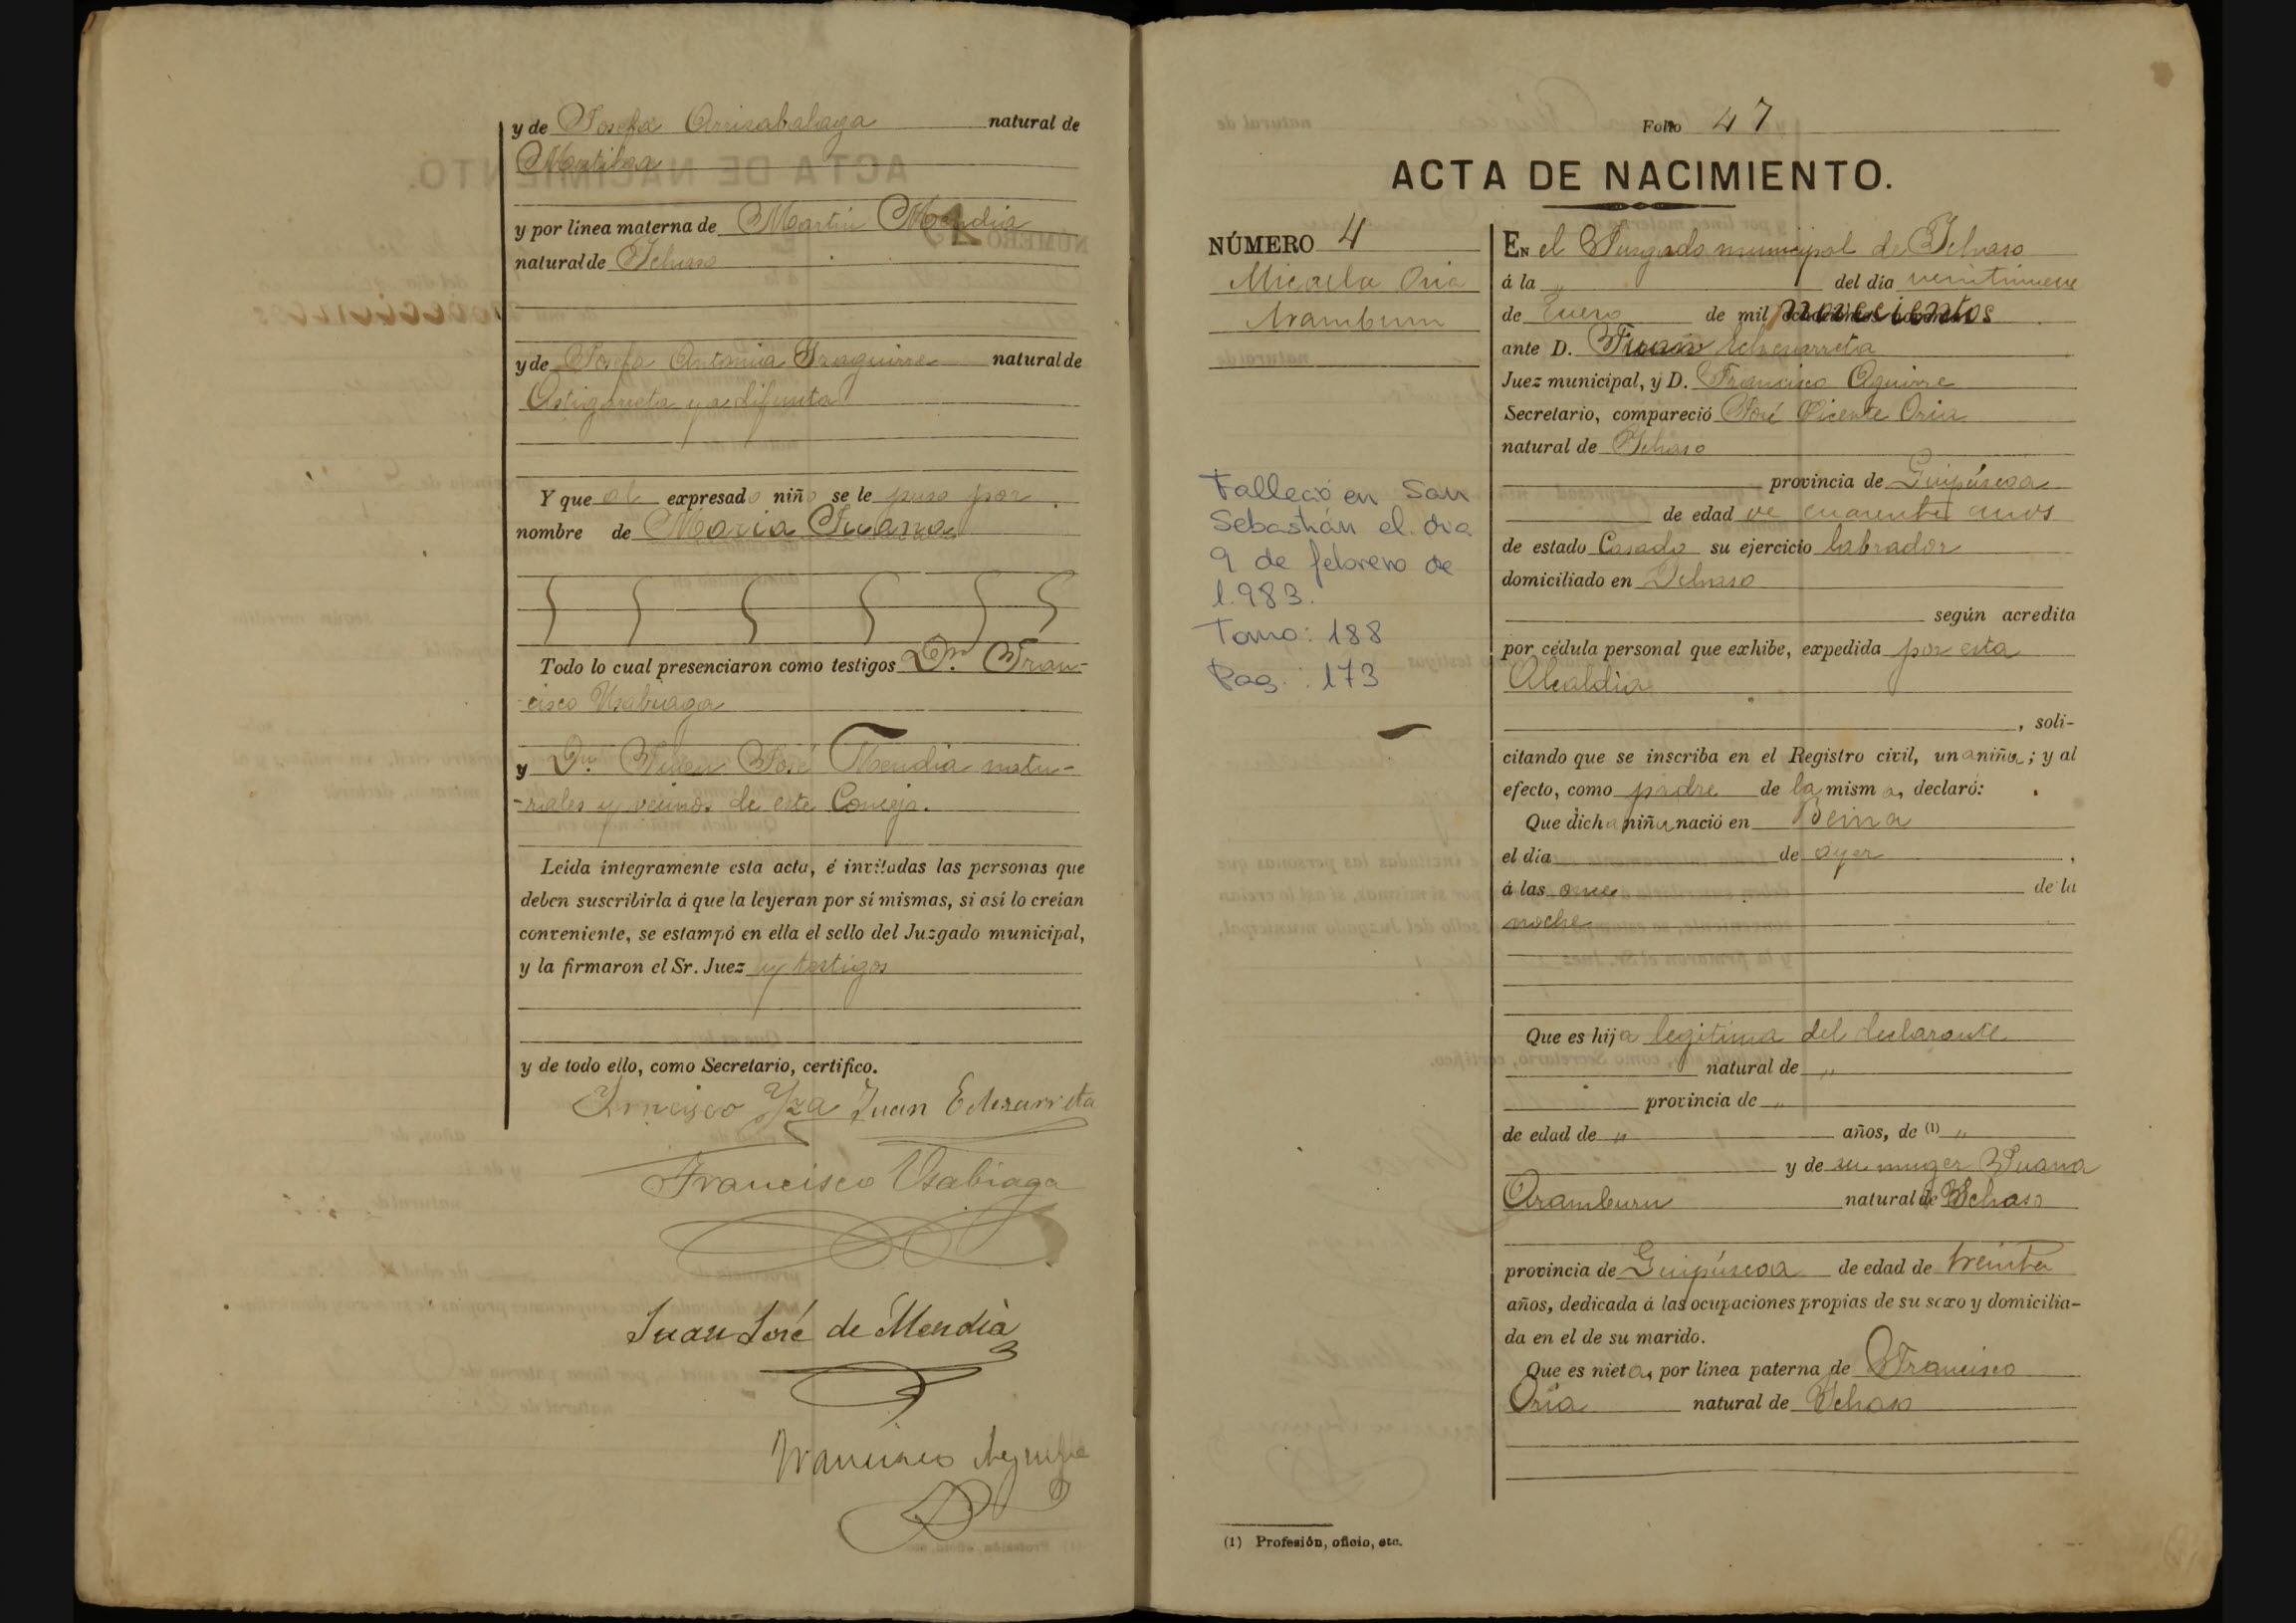 y de Josefa Areizabalaga natural de
Mutiloa
y por línea materna de Martin Mendia
natural de Ichaso
y de Josefa Antonia Izaguirre natural de
Astigarreta ya difunta
Y que al expresado niño se le puso por
nombre de Maria Juana
Todo lo cual presenciaron como testigos Dn. Fran-
-cisco Usabiaga
y Dn. Juan José Mendia natu-
-rales y vecinos de este Concejo.
Leída íntegramente esta acta, é invitadas las personas que
deben suscribirla á que la leyeran por sí mismas, si así lo creían
conveniente, se estampó en ella el sello del Juzgado municipal,
y la firmaron el Sr. Juez y testigos
y de todo ello, como Secretario, certifico.
Juan Echezarreta
Francisco Usabiaga
Juan José de Mendia
Francisco Aguirre
Folio 47
ACTA DE NACIMIENTO.
NÚMERO 4
Micaela Oria
Aramburu
Falleció en San
Sebastián el día
9 de febrero de
1.983.
Tomo: 188
Pag.: 173
EN el Juzgado municipal de Ichaso
á la „ del día veintinueve
de Enero de mil novecientos
ante D. Juan Echezarreta
Juez municipal, y D. Francisco Aguirre
Secretario, compareció José Vicente Oria
natural de Ichaso
provincia de Guipúscoa
de edad de cuarenta años
de estado Casado su ejercicio labrador
domiciliado en Ichaso
según acredita
por cédula personal que exhibe, expedida por esta
Alcaldia
, soli-
citando que se inscriba en el Registro civil, una niña; y al
efecto, como padre de la misma, declaró:
Que dicha niña nació en
el día de ayer
á las once de la
noche
Que es hija legitima del declarante
natural de „
provincia de „
de edad de „ años, de (1) „
y de su muger Juana
Aramburu natural de Ichaso
provincia de Guipúscoa de edad de treinta
años, dedicada á las ocupaciones propias de su sexo y domicilia-
da en el de su marido.
Que es nieta, por línea paterna de Francisco
Oria natural de Ichaso
(1) Profesión, oficio, etc.